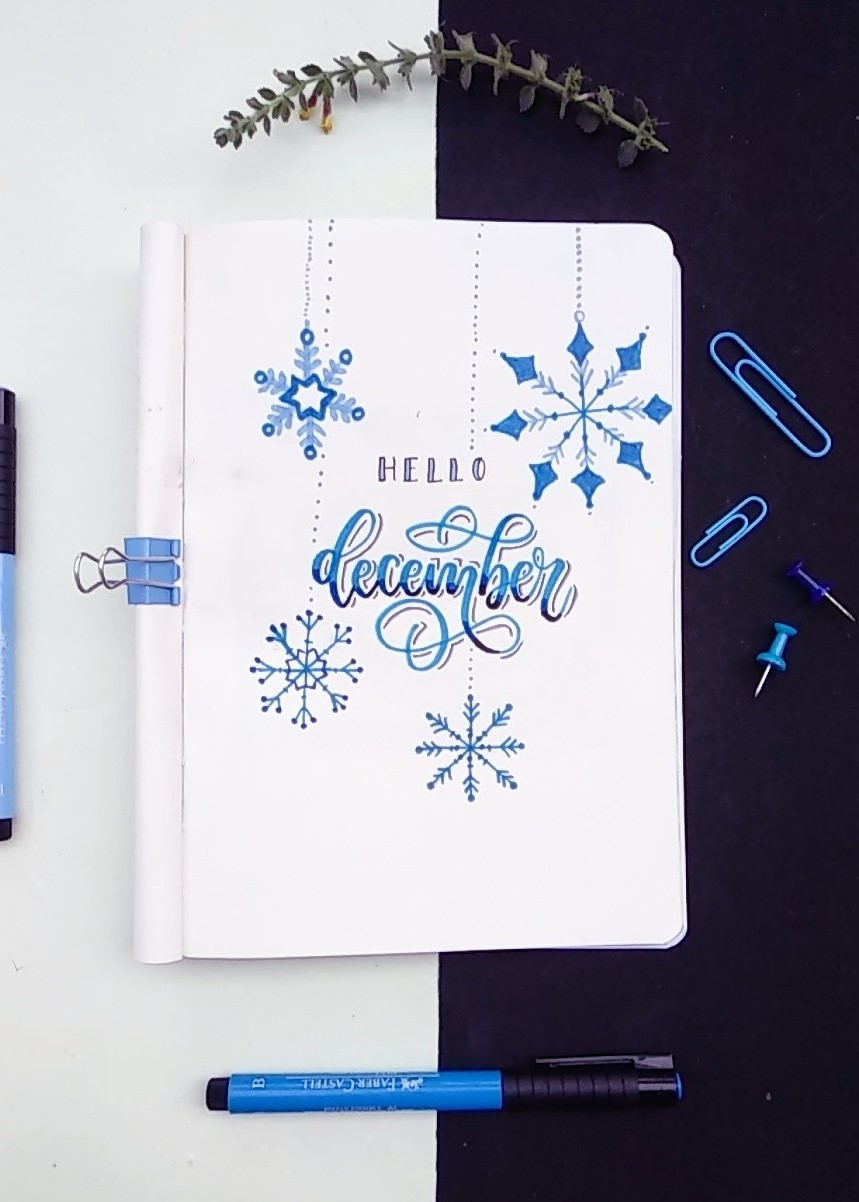 HELLO
december
B FABER-CASTELL